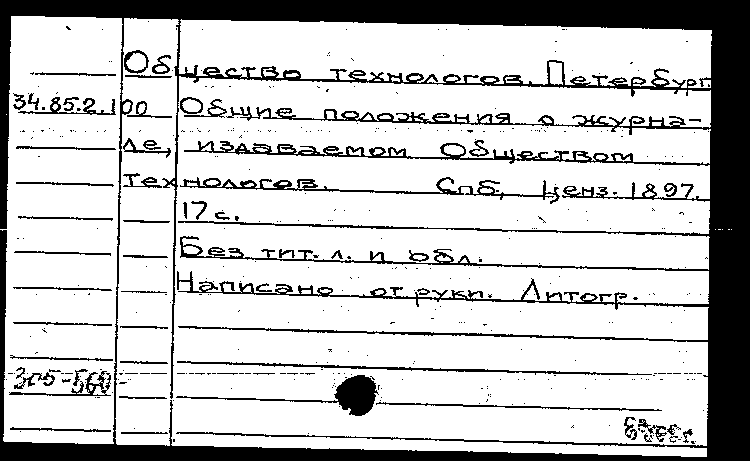 Общество технологов. Петербург
34.85.2.100 Общие положения о журна-
ле, издаваемом Обществом
технологов. Спб, ценз. 1897.
17 с.
Без тит. л. и обл.
Написано от руки. Литогр.
305-560